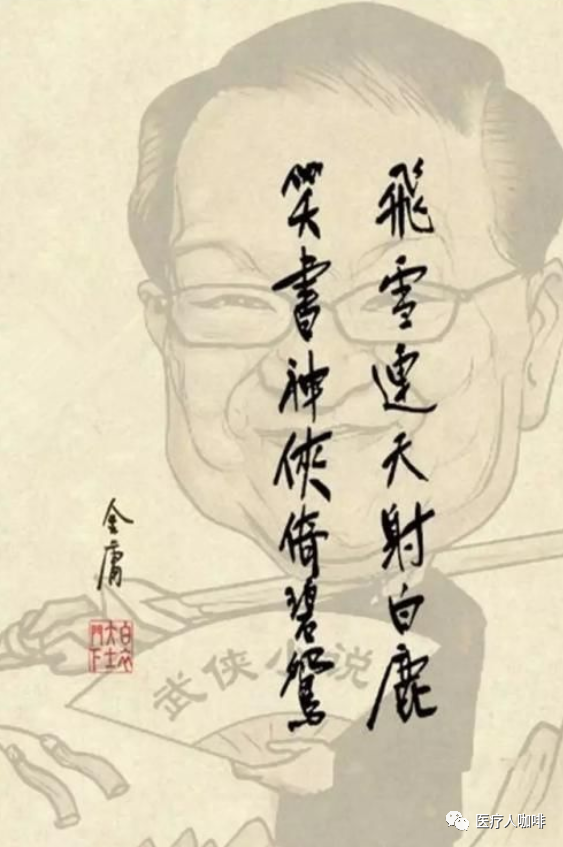 飛雪連天射白鹿
笑書神俠倚碧鴛
金庸
白衣
大士
門下
武侠小说
医疗人咖啡